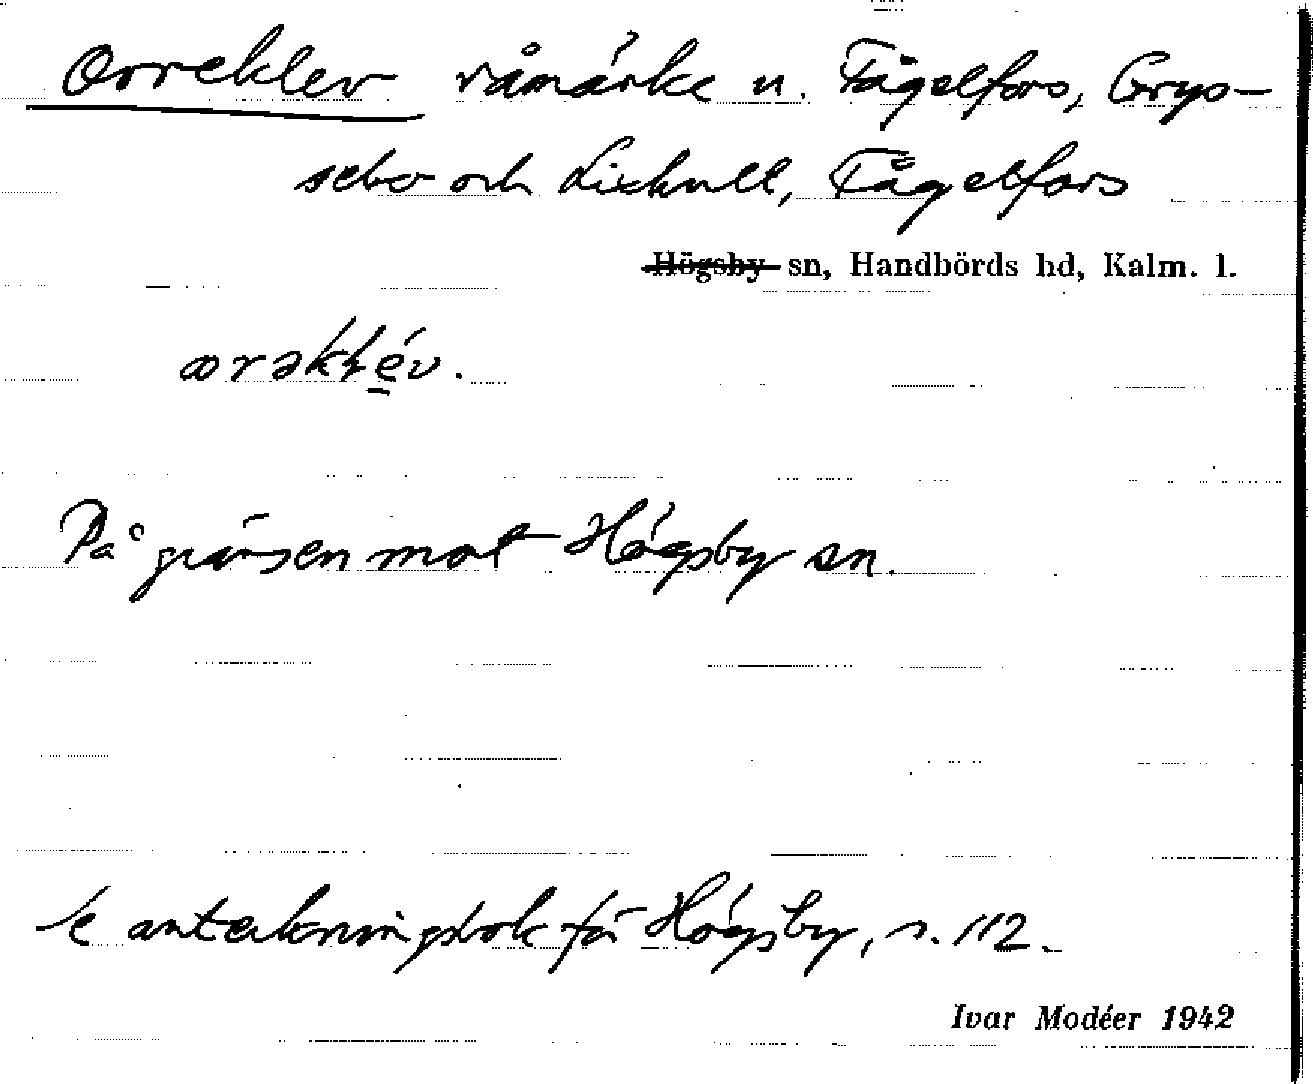 Orreklev råmärke u. Fågelfors, Grys-
sebo och Lixhult, Fågelfors
Högsby sn, Handbörds hd, Kalm. l.
På gränsen mot Högsby sn.
anteckningsbok för Högsby, s. 112.
Ivar Modéer 1942